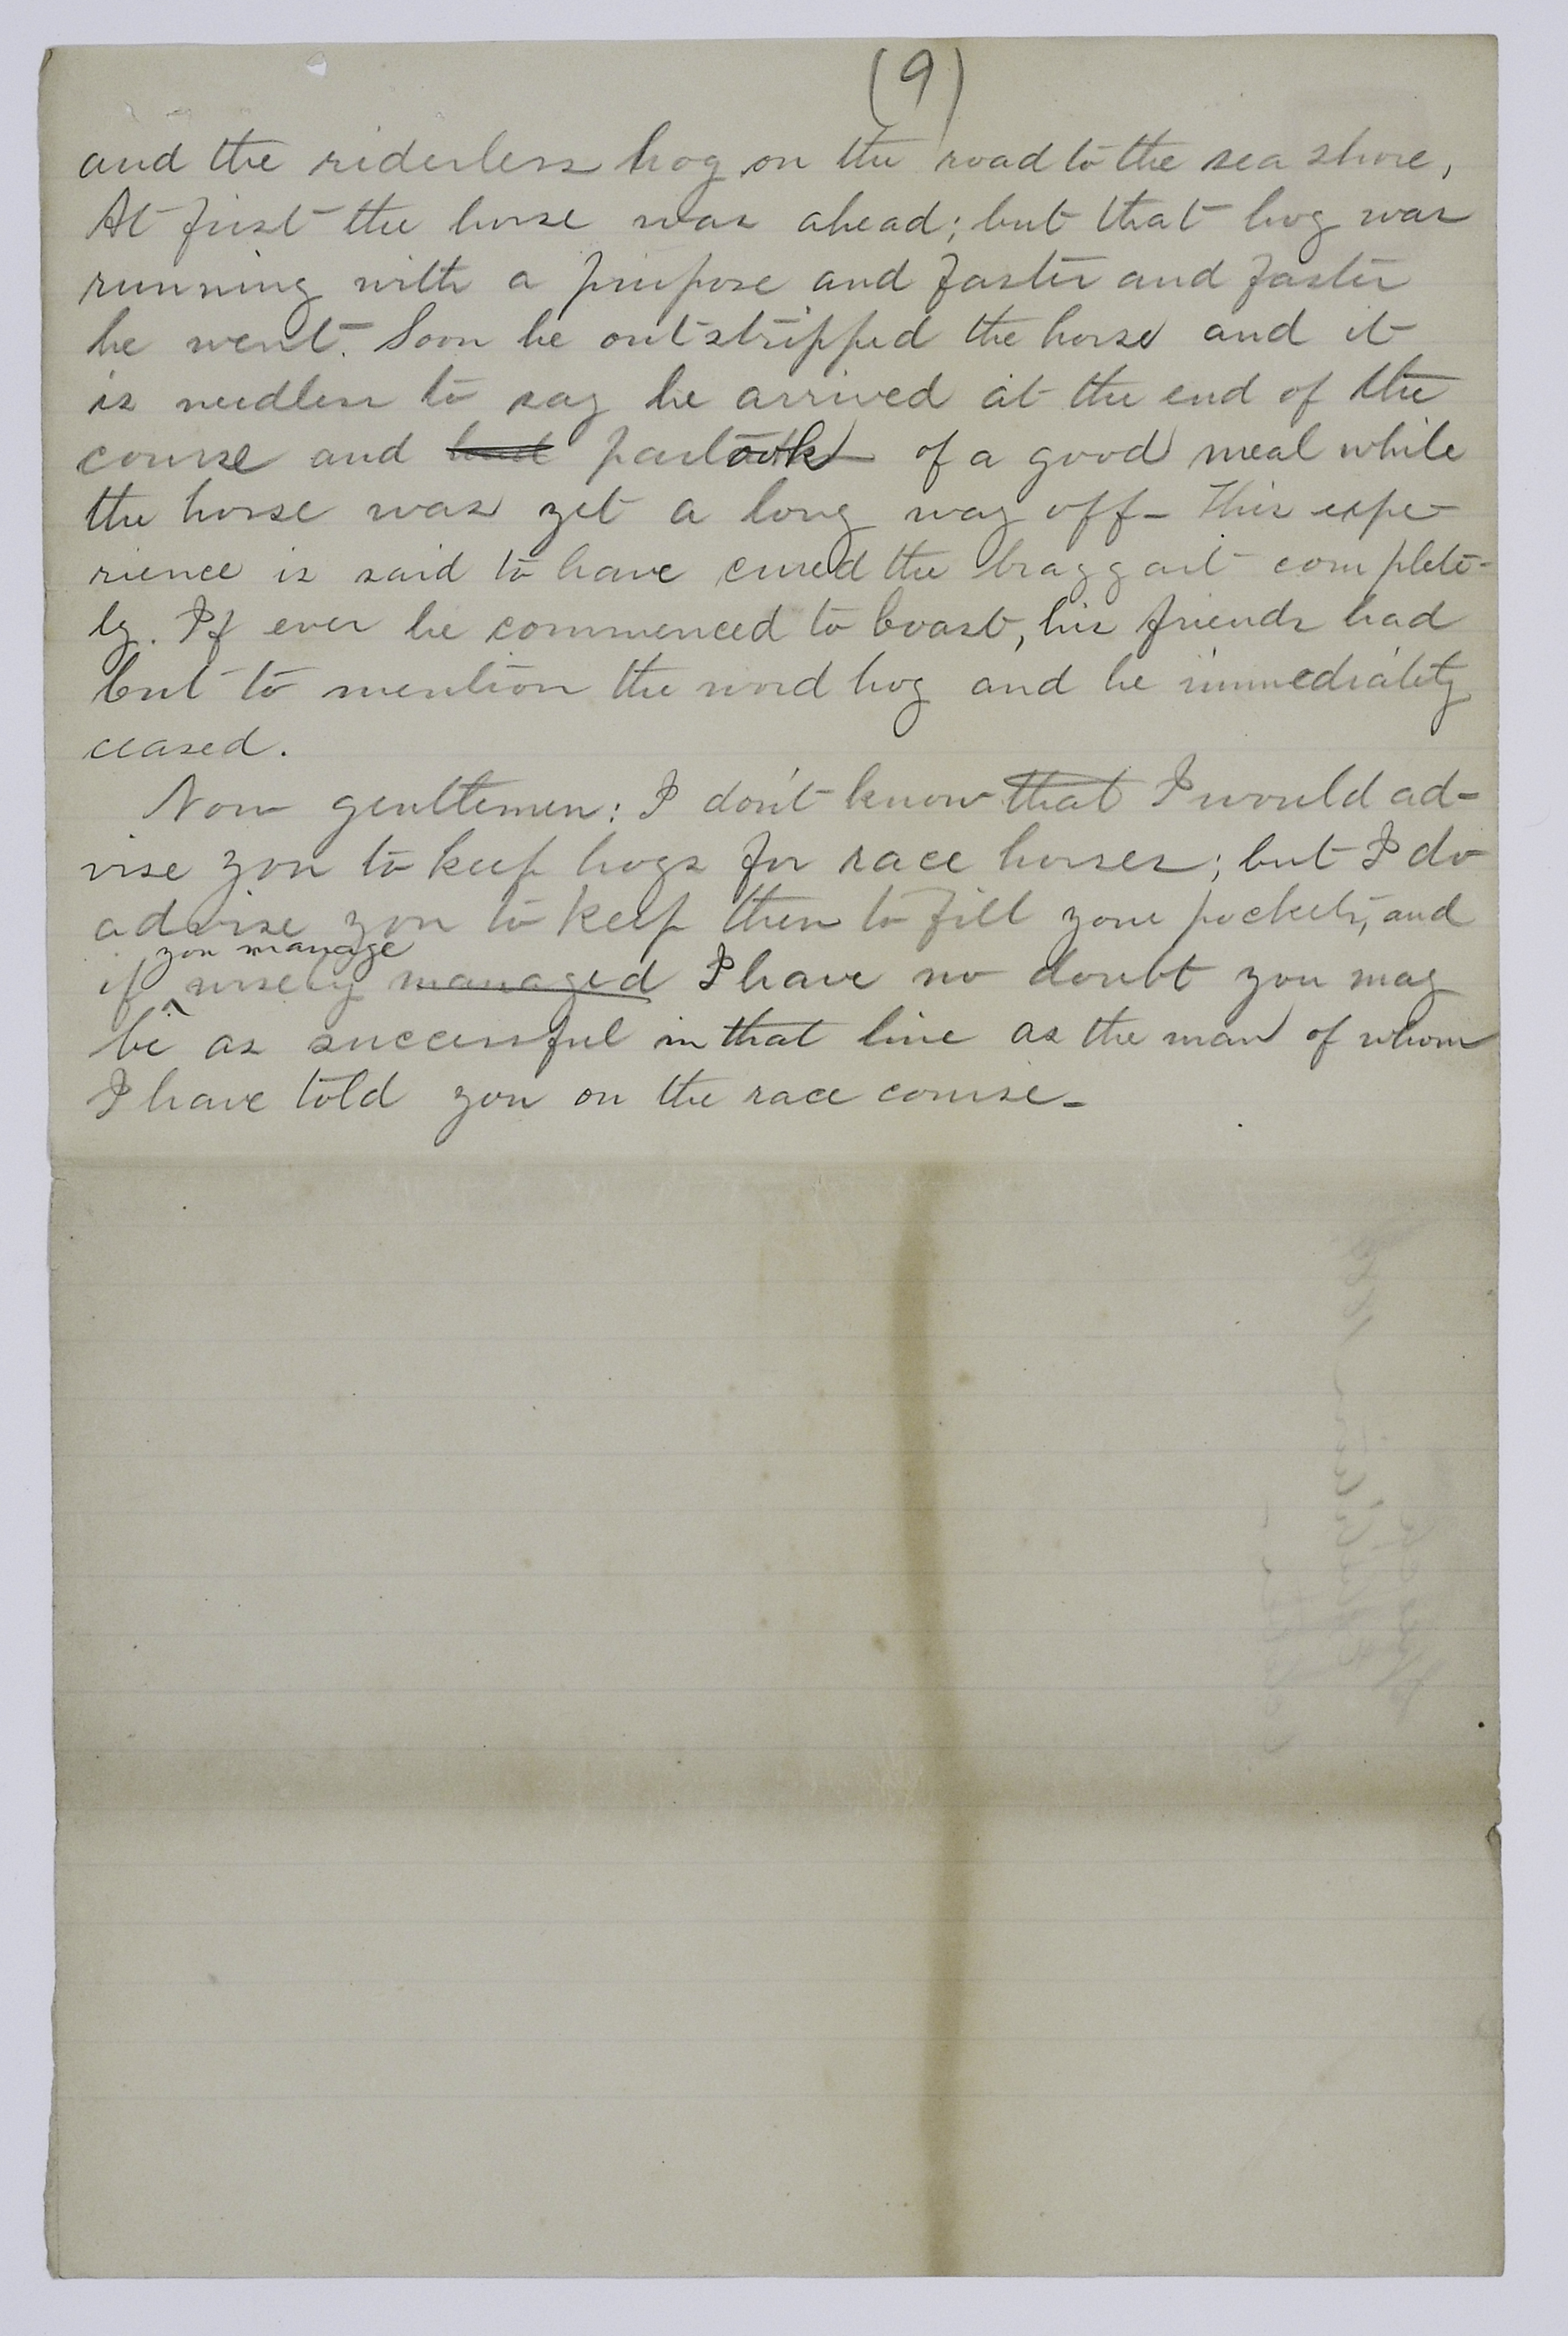 (9)
and the riderless hog on the road to the sea shore,
At first the horse was ahead; but that hog was
running with a purpose and faster and faster
he went. Soon he outstripped the horse and it
is needless to say he arrived at the end of the
course and had partook of a good meal while
the horse was yet a long way off- This expe-
rience is said to have cured the braggart complete-
ly. If ever he commenced to boast, his friends had
but to mention the word hog and he immediately
ceased.
Now gentlemen: I don't know that I would ad-
vise you to keep hogs for race horses; but I do
advise you to keep them to fill your pockets, and
you manage
if wisely managed I have no doubt you may
be as successful in that line as the man of whom
I have told you on the race course-